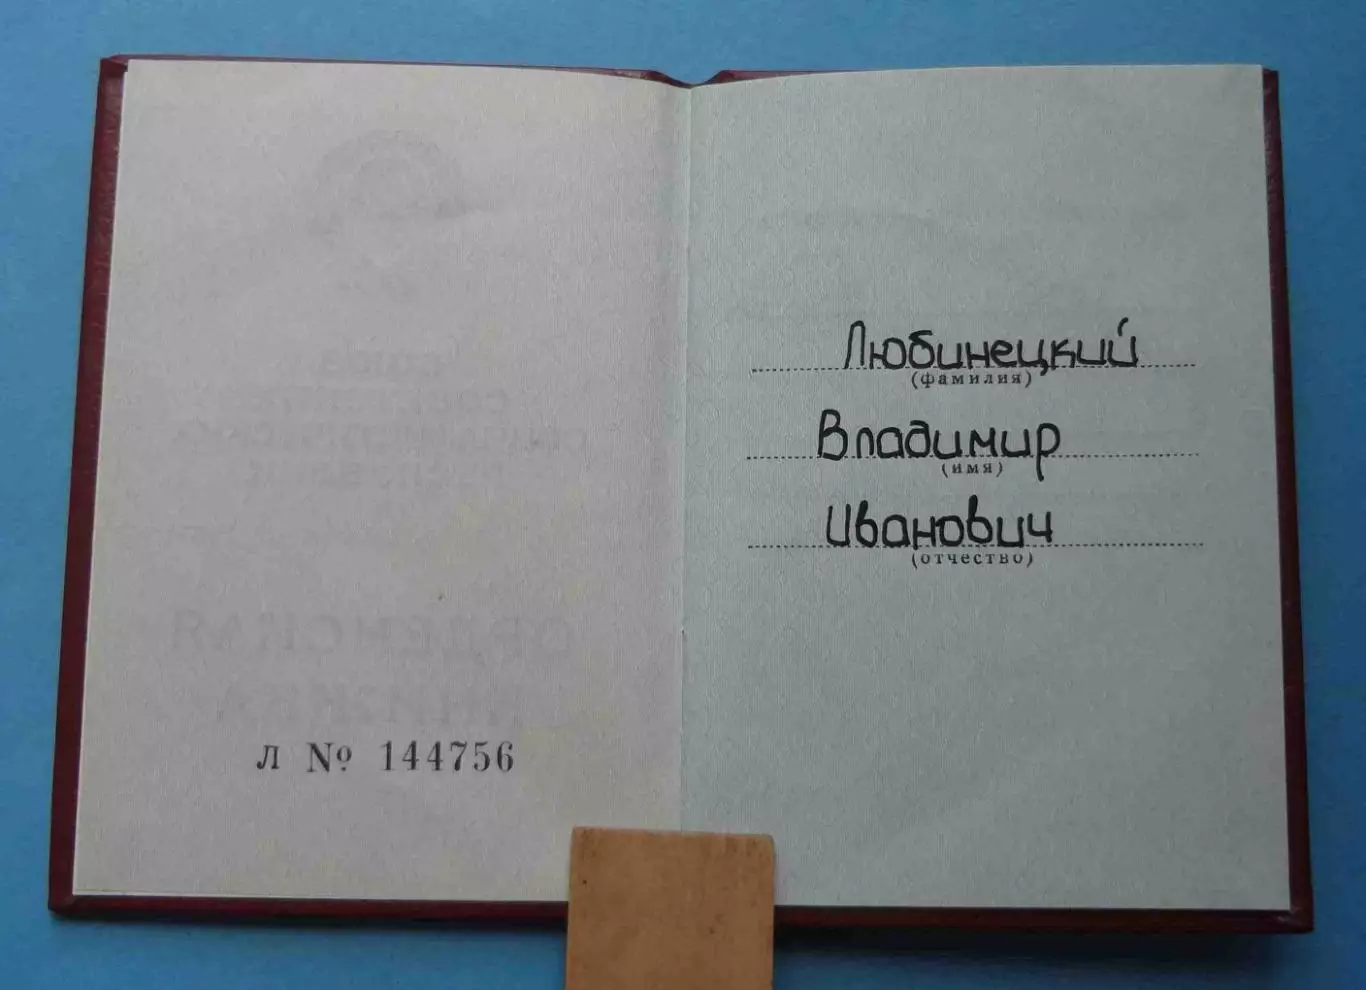 Л № 144756
Любинецкий
(фамилия)
Владимир
(имя)
Иванович
(отчество)